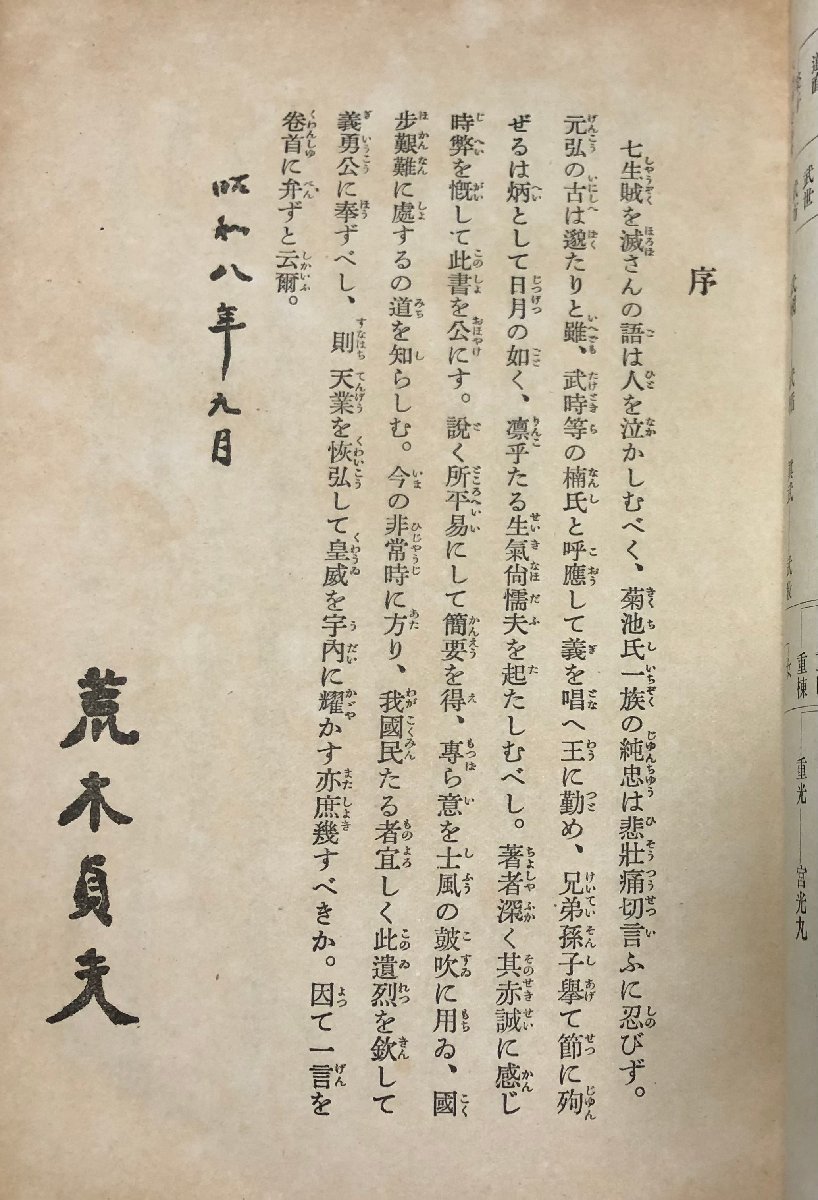 序
七生賊を滅さんの語は人を泣かしむべく、菊池氏一族の純忠は悲壯痛切言ふに忍びず。
元弘の古は邈たりと雖、武時等の楠氏と呼應して義を唱へ王に勤め、兄弟孫子擧て節に殉
ぜるは炳として日月の如く、凛乎たる生氣尙懦夫を起たしむべし。著者深く其赤誠に感じ
時弊を慨して此書を公にす。說く所平易にして簡要を得、專ら意を士風の皷吹に用ゐ、國
步艱難に處するの道を知らしむ。今の非常時に方り、我國民たる者宜しく此遺烈を欽して
義勇公に奉ずべし、則天業を恢弘して皇威を宇內に耀かす亦庶幾すべきか。因て一言を
卷首に弁ずと云爾。
昭和八年九月
荒木貞夫
重棟
重光
宮光丸